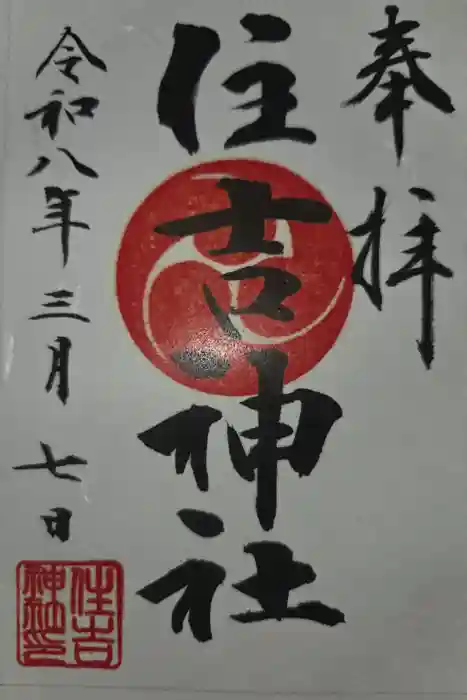 奉拝
住吉神社
令和八年三月七日
住吉
神社印